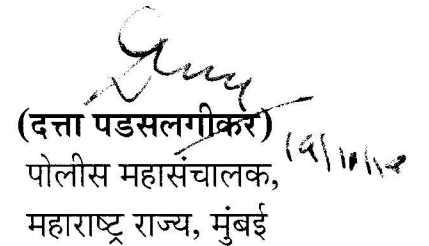 (दत्ता पडसलगीकर)
पोलीस महासंचालक,
महाराष्ट्र राज्य, मुंबई